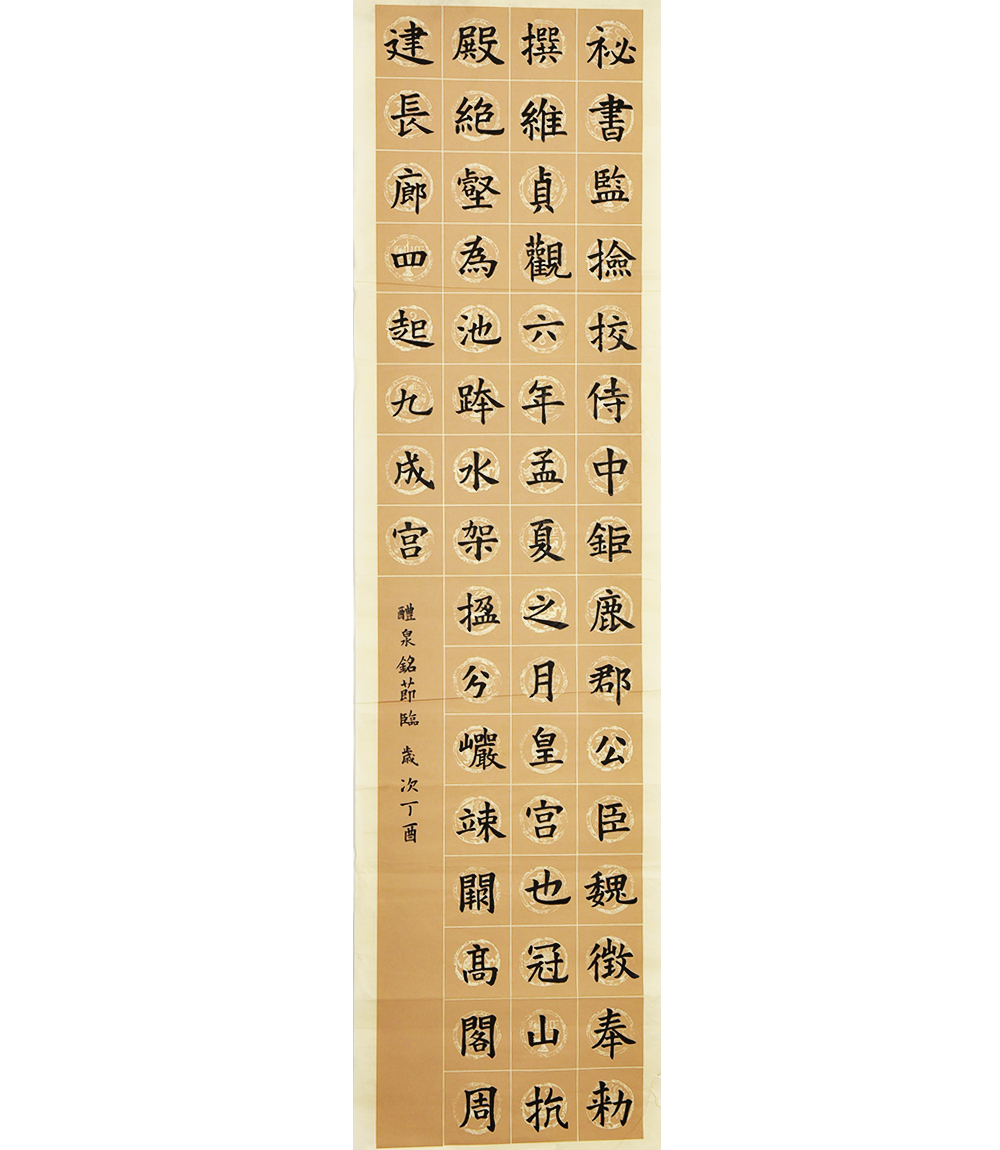 祕書監撿挍侍中鉅鹿郡公臣魏徵奉勑
撰維貞觀六年孟夏之月皇宫也冠山抗
殿絶壑為池跨水架楹分巗竦闕髙閣周
建長廊四起九成宫
醴泉銘莭臨 歲次丁酉